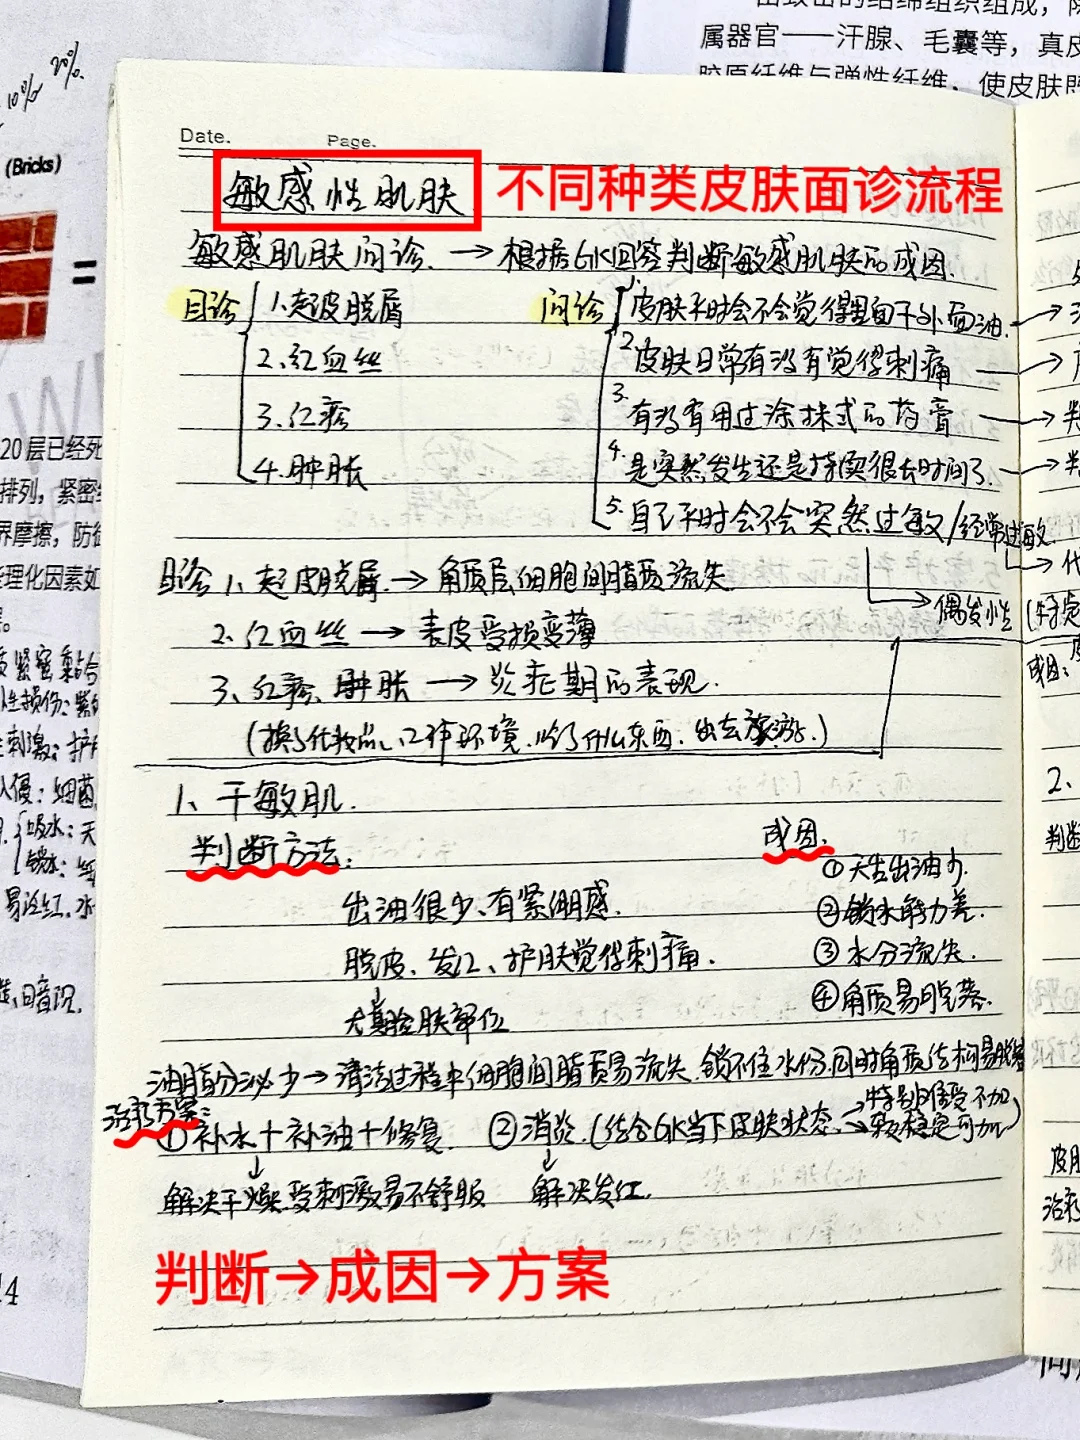 由致密的结缔组织组成，
属器官——汗腺、毛囊等，真皮
胶原纤维与弹性纤维，使皮肤既
10% 20%
(Bricks)
=
20层已经死
排列，紧密
界摩擦，防御
理化因素如
Date. Page.
敏感性肌肤
不同种类皮肤面诊流程
敏感肌肤问诊 → 根据GK回答判断敏感肌肤的成因.
目诊 1.起皮脱屑
2.红血丝
3.红疹
4.肿胀
问诊 1.皮肤平时会不会觉得里面干外面油. →
2.皮肤日常有没有觉得刺痛 →
3.有没有用过涂抹式的药膏 → 判
4.是突然发生还是持续很长时间了. → 判
5.自己平时会不会突然过敏/经常过敏.
→偶发性
目诊 1.起皮脱屑. → 角质层细胞间脂质流失.
2.红血丝 → 表皮受损变薄
3、红疹、肿胀 → 炎症期的表现.
(换了化妆品、工作环境、吃了什么东西、出去旅游.)
1、干敏肌.
判断方法:
出油很少、有紧绷感.
脱皮、发红、护肤觉得刺痛.
↓
大真脸肤部位
成因:
①天生出油少.
②锁水能力差.
③水分流失.
④角质易脱落.
油脂分泌少→清洁过程中细胞间脂质易流失.锁不住水份.同时角质结构易脱落
治疗方案:
①补水+补油+修复. ②消炎.(结合GK当下皮肤状态.→特别难受不加 →较稳定可加)
↓ ↓
解决干燥.受刺激易不舒服 解决发红.
判断→成因→方案
成因:
2、
判断
皮肤
治疗
紧密黏合
性损伤:
刺激:护
入侵:细菌
吸水:天
锁水:
易泛红、水
、暗沉.